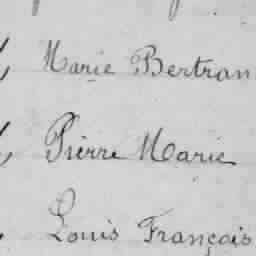 Marie Bertran
Pierre Marie
Louis François